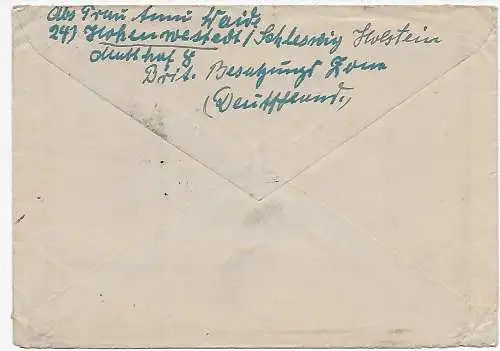 Abs Frau Anni Waide
24) Hohenwestedt / Schleswig Holstein
8
Brit. Besatzungs Zone
(Deutschland.)